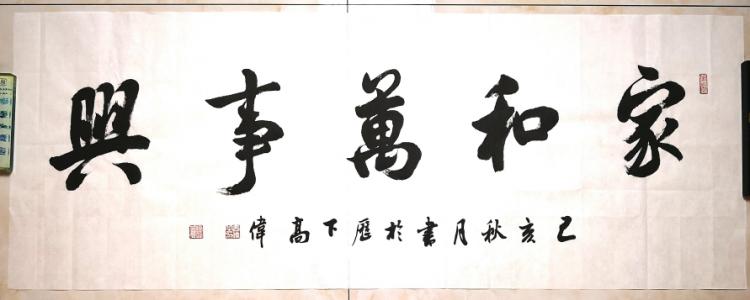 家和萬事興
己亥秋月書於歷下高偉